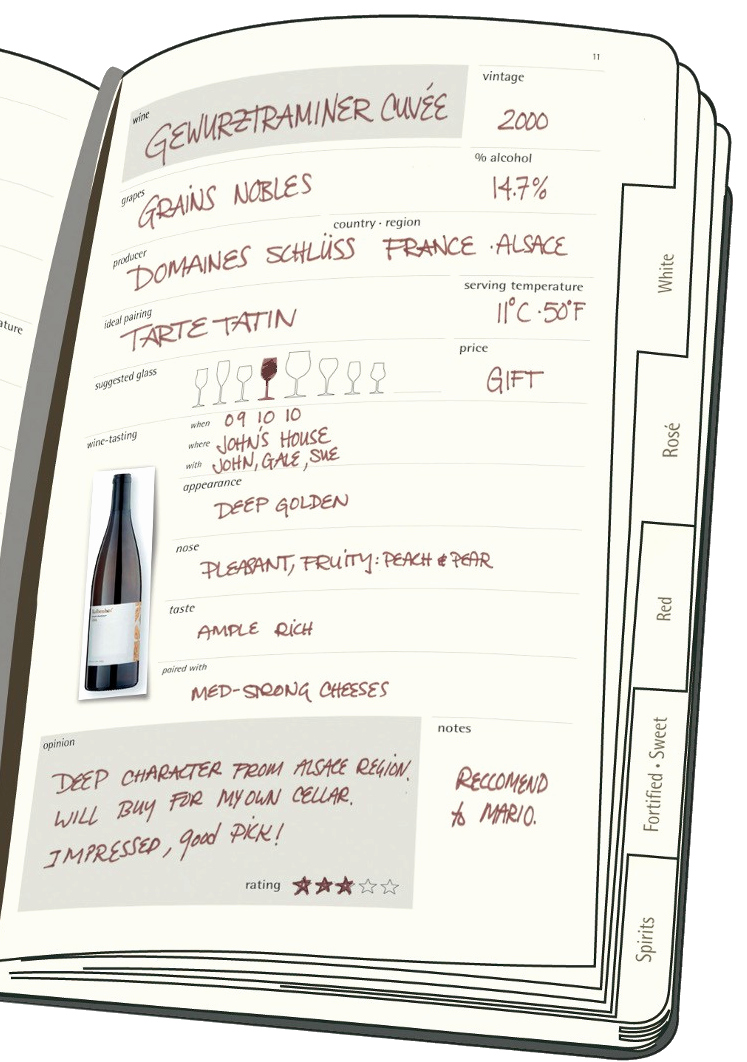 11
wine
GEWURZTRAMINER CUVÉE
vintage
2000
grapes
GRAINS NOBLES
% alcohol
14.7%
producer
DOMAINES SCHLÜSS
country · region
FRANCE · ALSACE
ideal pairing
TARTE TATIN
serving temperature
11°C · 50°F
suggested glass
price
GIFT
wine-tasting
when 09 10 10
where JOHN'S HOUSE
with JOHN, GALE, SUE
appearance
DEEP GOLDEN
nose
PLEASANT, FRUITY: PEACH & PEAR
taste
AMPLE RICH
paired with
MED-STRONG CHEESES
opinion
DEEP CHARACTER FROM ALSACE REGION.
WILL BUY FOR MY OWN CELLAR.
IMPRESSED, good PICK!
rating
notes
RECCOMEND
to MARIO.
ature
White
Rosé
Red
Fortified · Sweet
Spirits